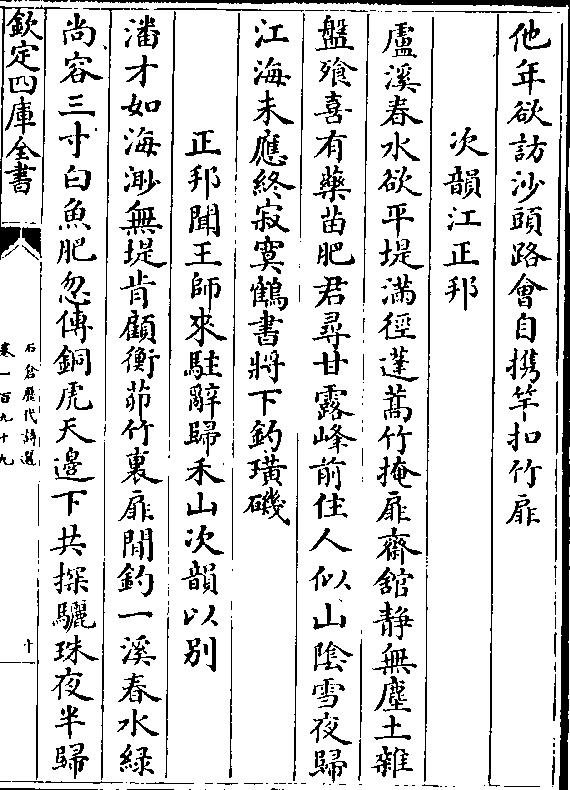 他年欲訪沙頭路會自携竿扣竹扉
次韻江正邦
盧溪春水欲平堤滿徑蓬蒿竹掩扉齋舘静無塵土雜
盤飱喜有藥苗肥君尋甘露峰前住人似山陰雪夜歸
江海未應終寂寞鶴書將下釣璜磯
正邦聞王師來駐辭歸禾山次韻以别
潘才如海渺無堤肯顧衡茆竹裏扉閒釣一溪春水緑
尚容三寸白魚肥忽傳銅虎天邊下共探驪珠夜半歸
欽定四庫全書
石倉歷代詩選
卷一百九十九
十